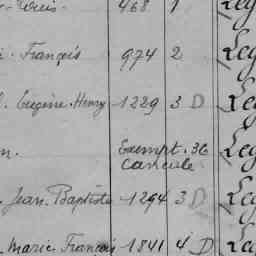 Louis 468 1 Leg
François 974 2 Leg
Eugène Henry 1229 3 D Leg
n. Exempt. 36 Leg
cancule
Jean Baptiste 1294 3 D Leg
Marie François 1841 4 D Leg